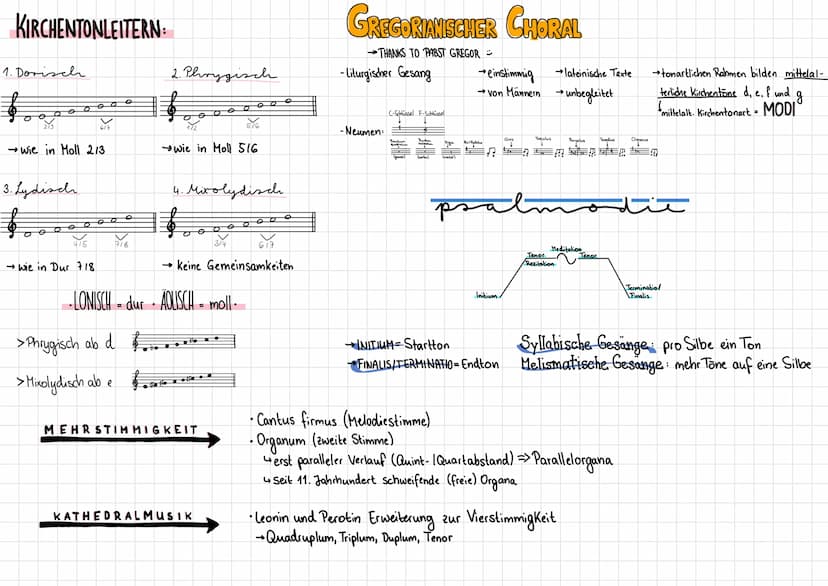 KIRCHENTONLEITERN:
1. Dorisch
2/3 6/7
→ wie in Moll 2/3
2. Phrygisch
1/2 5/6
→ wie in Moll 5/6
3. Lydisch
4/5 7/8
→ wie in Dur 7/8
4. Mixolydisch
3/4 6/7
→ keine Gemeinsamkeiten
· IONISCH = dur · ÄOLISCH = moll ·
> Phrygisch ab d
> Mixolydisch ab e
GREGORIANISCHER CHORAL
→ THANKS TO PABST GREGOR
- liturgischer Gesang
→ einstimmig
→ von Männern
→ lateinische Texte
→ unbegleitet
→ tonartlichen Rahmen bilden mittelal-
terliche Kirchentöne d, e, f und g
mittelalt. Kirchentonart = MODI
- Neumen:
C-Schlüssel F-Schlüssel
psalmodie
Initium
Tenor
Rezitation
Mediation
Tenor
Terminatio/
Finalis
→ INITIUM = Startton
→ FINALIS/TERMINATIO = Endton
Syllabische Gesänge: pro Silbe ein Ton
Melismatische Gesänge: mehr Töne auf eine Silbe
MEHRSTIMMIGKEIT
· Cantus firmus (Melodiestimme)
· Organum (zweite Stimme)
↳ erst paralleler Verlauf (Quint-/Quartabstand) ⇒ Parallelorgana
↳ seit 11. Jahrhundert schweifende (freie) Organa
KATHEDRALMUSIK
· Leonin und Perotin Erweiterung zur Vierstimmigkeit
→ Quadruplum, Triplum, Duplum, Tenor